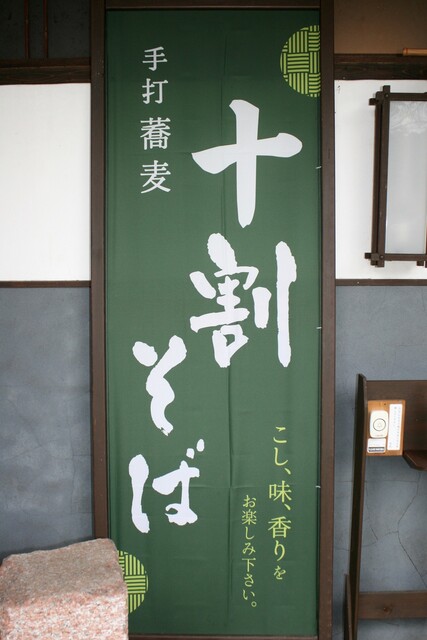 手打蕎麦
十割
そば
こし、味、香りを
お楽しみ下さい。